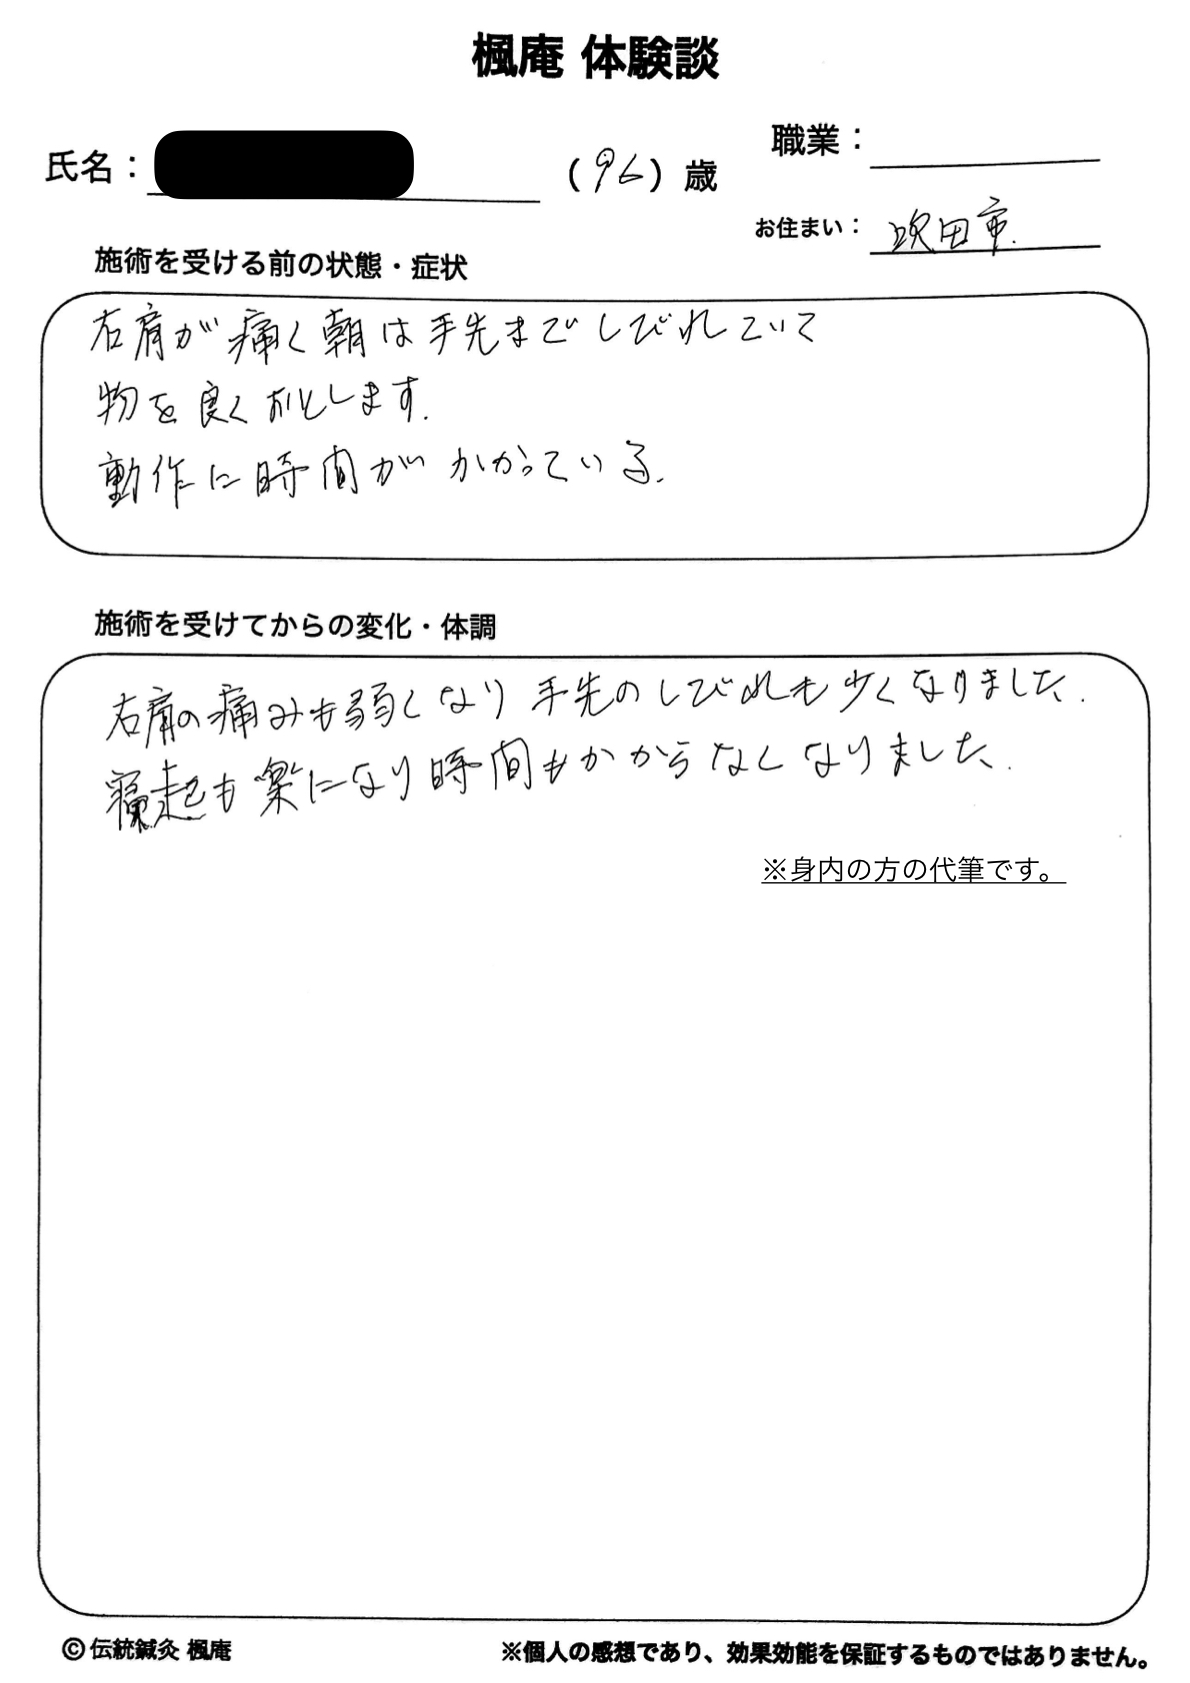 楓庵 体験談
氏名：
（96）歳
職業：
お住まい： 吹田市.
施術を受ける前の状態・症状
右肩が痛く朝は手先までしびれていて
物を良くおとします.
動作に時間がかかっている.
施術を受けてからの変化・体調
右肩の痛みも弱くなり手先のしびれも少くなりました.
寝起も楽になり時間もかからなくなりました.
※身内の方の代筆です。
© 伝統鍼灸 楓庵
※個人の感想であり、効果効能を保証するものではありません。